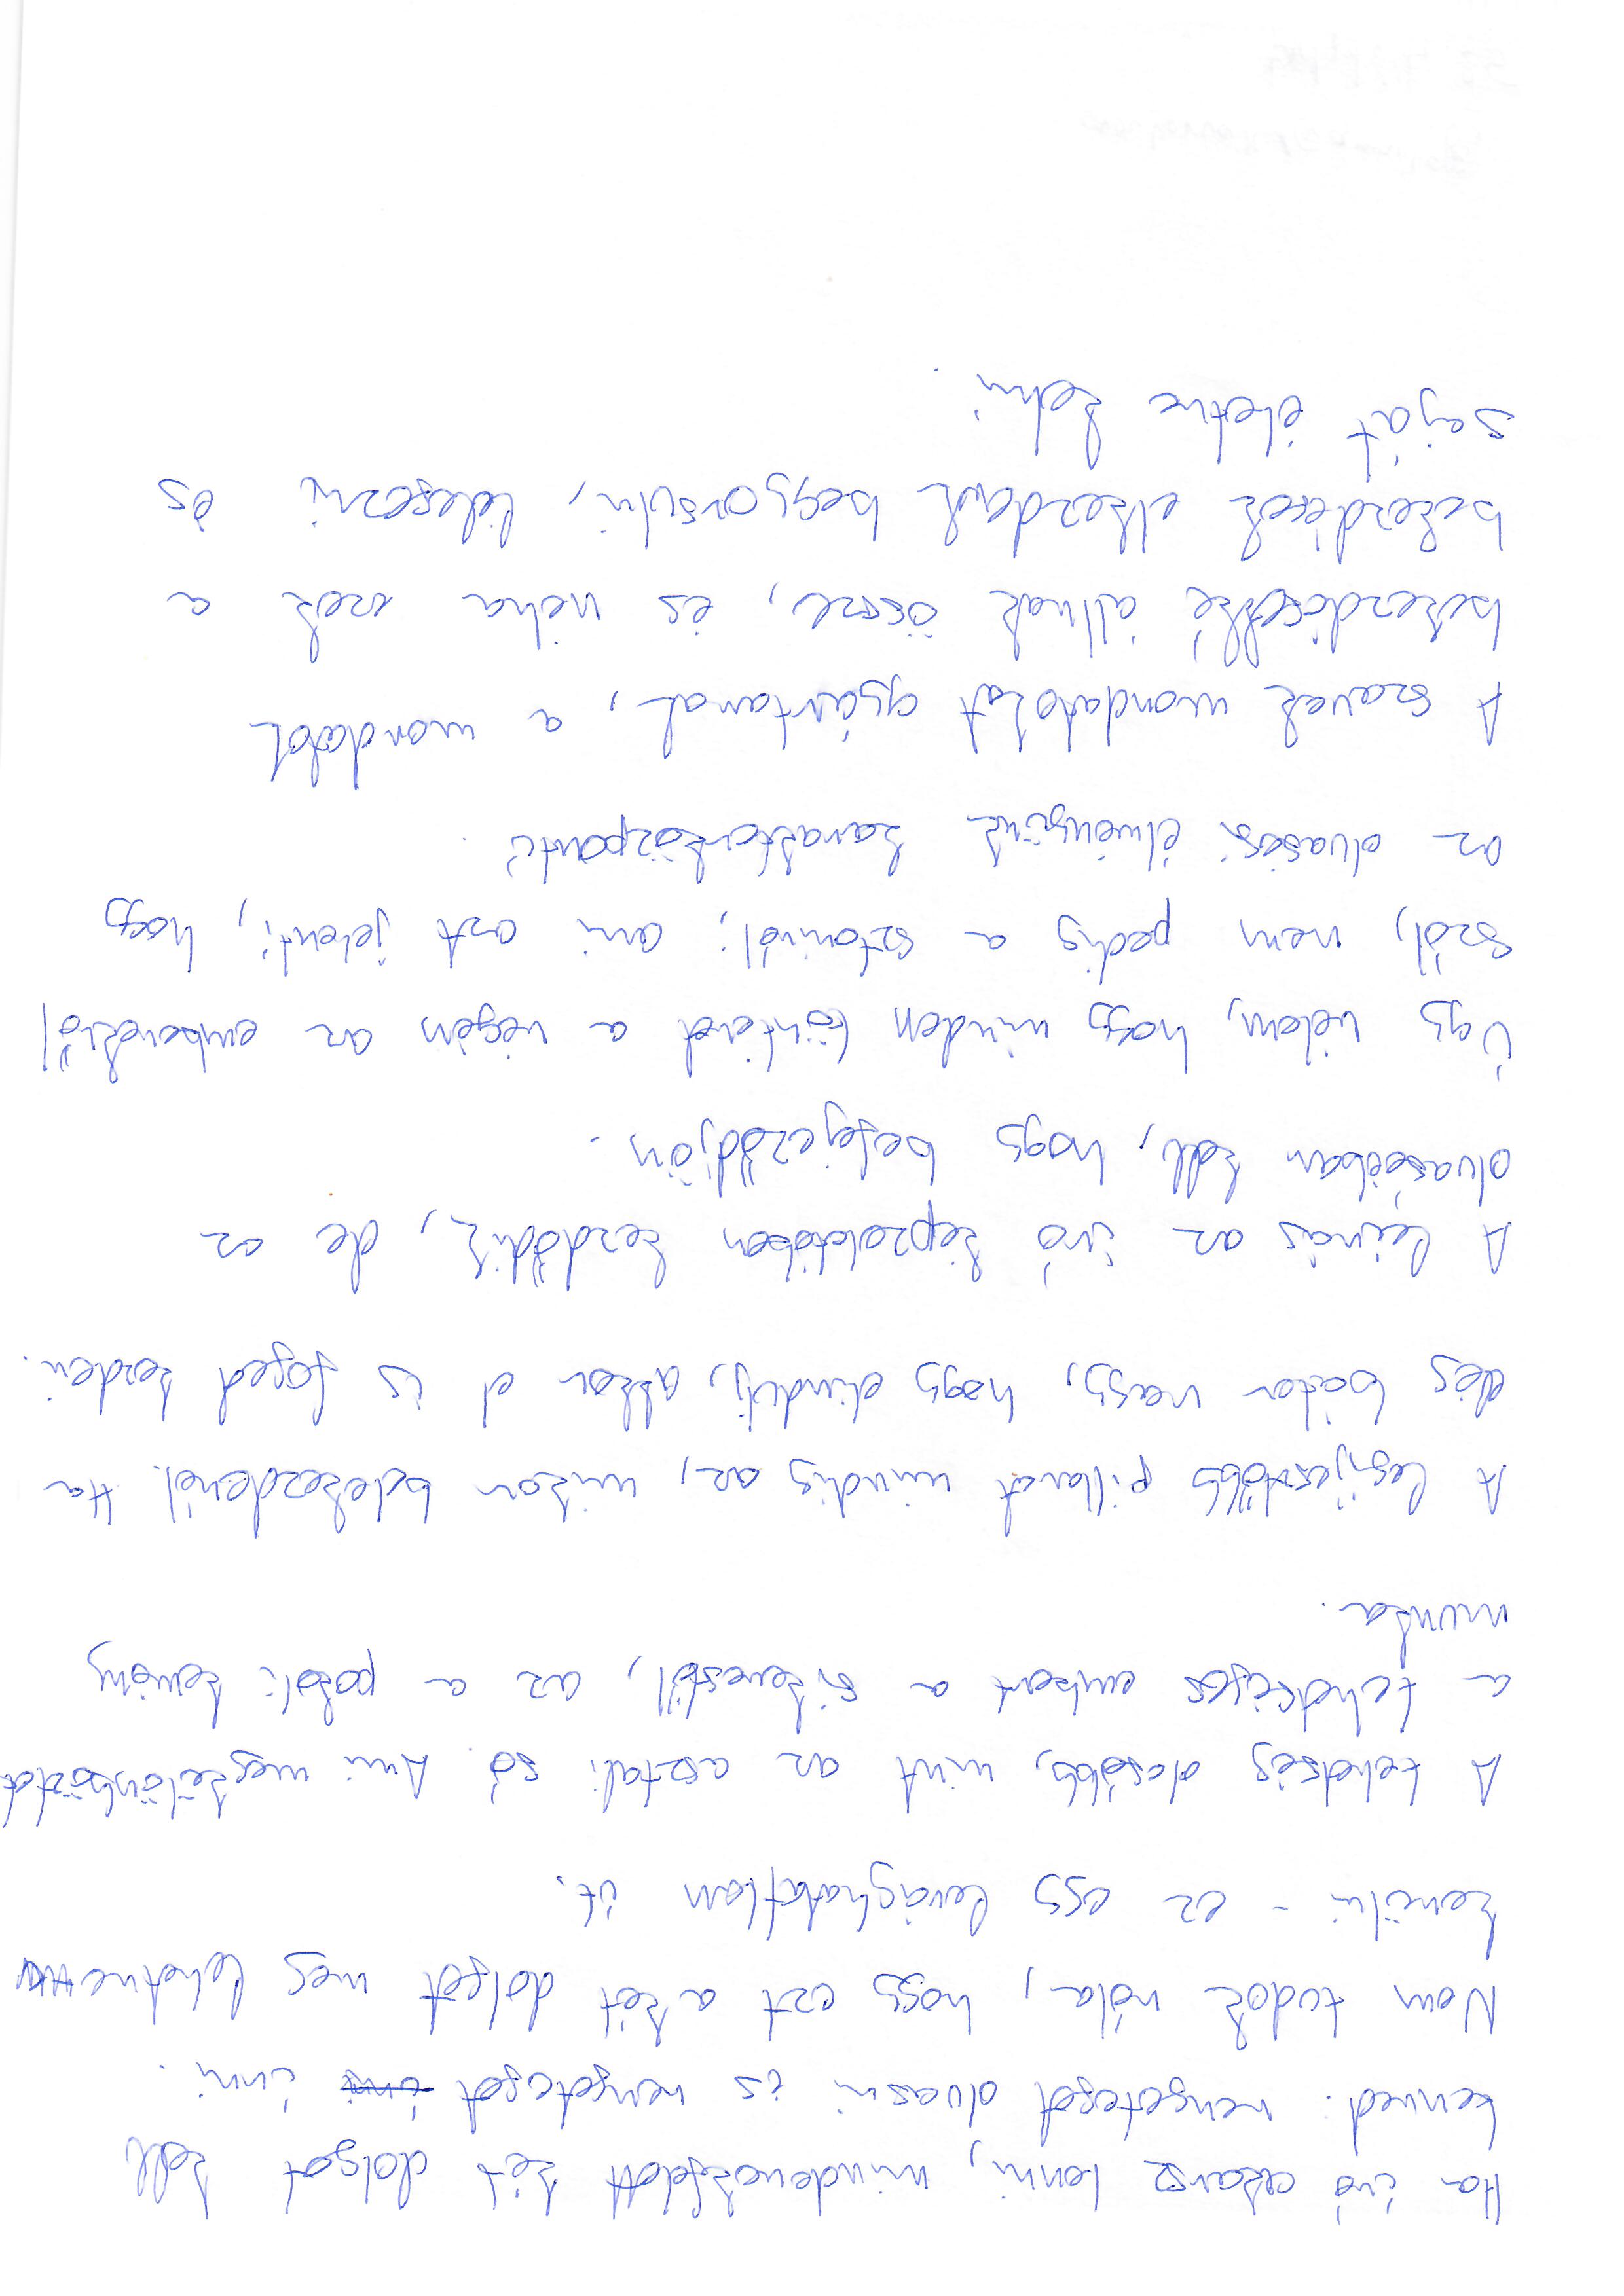 Ha író akarsz lenni, mindenekfelett két dolgot kell
tenned: rengeteget olvasni és rengeteget írni írni.
Nem tudok róla, hogy ezt a két dolgot meg lehetne
kerülni - ez egy levághatatlan út.
A tehetség olcsóbb, mint az asztali só. Ami megkülönbözteti
a tehetséges embert a sikerestől, az a pokoli kemény
munka.
A legijesztőbb pillanat mindig az, mikor belekezdenél. Ha
elég bátor vagy, hogy elindulj, akkor el is fogod kezdeni.
A leírás az író képzeletében kezdődik, de az
olvasóéban kell, hogy befejeződjön.
Úgy vélem, hogy minden történet a végén az emberekről
szól, nem pedig a sztoriról; ami azt jelenti, hogy
az olvasási élményünk karakterközpontú.
A szavak mondatokat gyártanak, a mondatok
bekezdésekké állnak össze, és néha ezek a
bekezdések elkezdenek begyorsulni, lélegezni és
saját életre kelni.